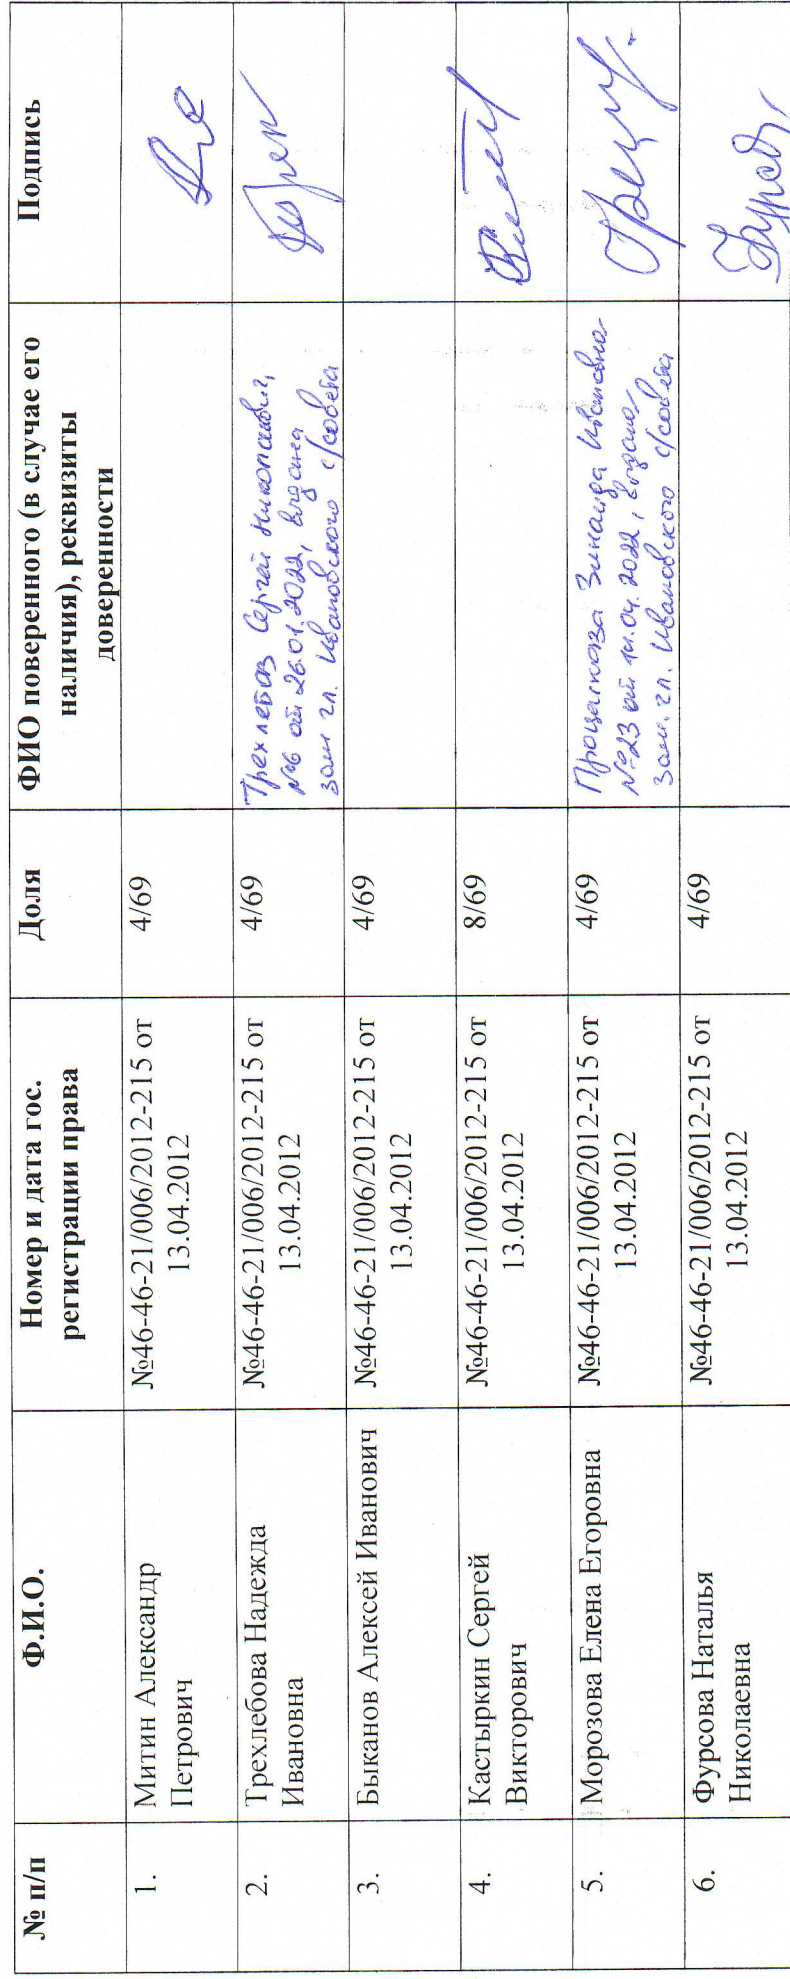 № п/п
Ф.И.О.
Номер и дата гос.
регистрации права
Доля
ФИО поверенного (в случае его
наличия), реквизиты
доверенности
Подпись
1.
Митин Александр
Петрович
№46-46-21/006/2012-215 от
13.04.2012
4/69
2.
Трехлебова Надежда
Ивановна
№46-46-21/006/2012-215 от
13.04.2012
4/69
Трехлебов Сергей Николаевич,
№6 от 26.01.2022, выдана
зам гл. Ивановского с/совета
3.
Быканов Алексей Иванович
№46-46-21/006/2012-215 от
13.04.2012
4/69
4.
Кастыркин Сергей
Викторович
№46-46-21/006/2012-215 от
13.04.2012
8/69
5.
Морозова Елена Егоровна
№46-46-21/006/2012-215 от
13.04.2012
4/69
Зинаида Ивановна
№23 от 04.2022, выдана
зам. гл. Ивановского с/совета
6.
Фурсова Наталья
Николаевна
№46-46-21/006/2012-215 от
13.04.2012
4/69